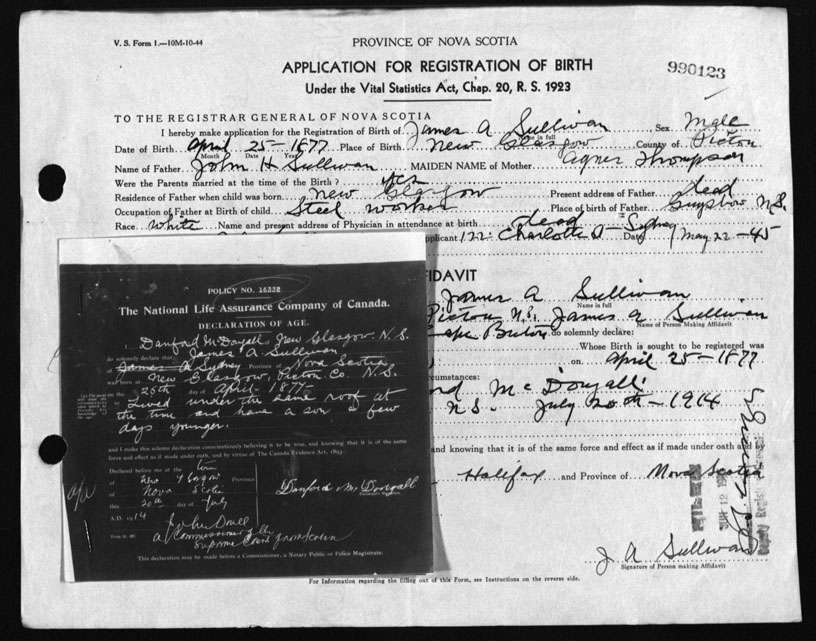 V. S. Form 1.—10M-10-44
PROVINCE OF NOVA SCOTIA
990123
APPLICATION FOR REGISTRATION OF BIRTH
Under the Vital Statistics Act, Chap. 20, R. S. 1923
TO THE REGISTRAR GENERAL OF NOVA SCOTIA
I hereby make application for the Registration of Birth of James A Sullivan Sex Male
Name in full
Date of Birth April 25-1877 Place of Birth New Glasgow County of Pictou
Month Date Year
Name of Father John H Sullivan MAIDEN NAME of Mother Agnes Thompson
Were the Parents married at the time of the Birth? yes
Residence of Father when child was born New Glasgow Present address of Father dead
Occupation of Father at Birth of child Steel worker Place of birth of Father Guysboro N.S.
Race White Name and present address of Physician in attendance at birth dead
applicant 122 Charlotte St Sydney Date May 22-45
FIDAVIT
James A Sullivan
Name in full
Pictou N.S. James A Sullivan
Name of Person Making Affidavit
Cape Breton do solemnly declare:
Whose Birth is sought to be registered was
on April 25-1877
circumstances:
ord McDougall
N.S. July 20th-1914
and knowing that it is of the same force and effect as if made under oath and by
Halifax and Province of Nova Scotia
Deputy Registrar
J A Sullivan
Signature of Person making Affidavit
For Information regarding the filling out of this Form, see Instructions on the reverse side.
POLICY NO. 16332
The National Life Assurance Company of Canada.
DECLARATION OF AGE.
I Danford McDougall New Glasgow N.S.
do solemnly declare that James A Sullivan
James A Sydney Province of Nova Scotia
was born at New Glasgow, Pictou Co N.S.
the 25th day of April 1877
Lived under the same roof at
the time and have a son a few
days younger.
and I make this solemn declaration conscientiously believing it to be true, and knowing that it is of the same
force and effect as if made under oath, and by virtue of The Canada Evidence Act, 1893.
Declared before me at the town
of New Glasgow Province
of Nova Scotia
this 20th day of July
A.D. 1914
Danford McDougall
A Commissioner of the
Supreme Court Nova Scotia
This declaration may be made before a Commissioner, a Notary Public or Police Magistrate.